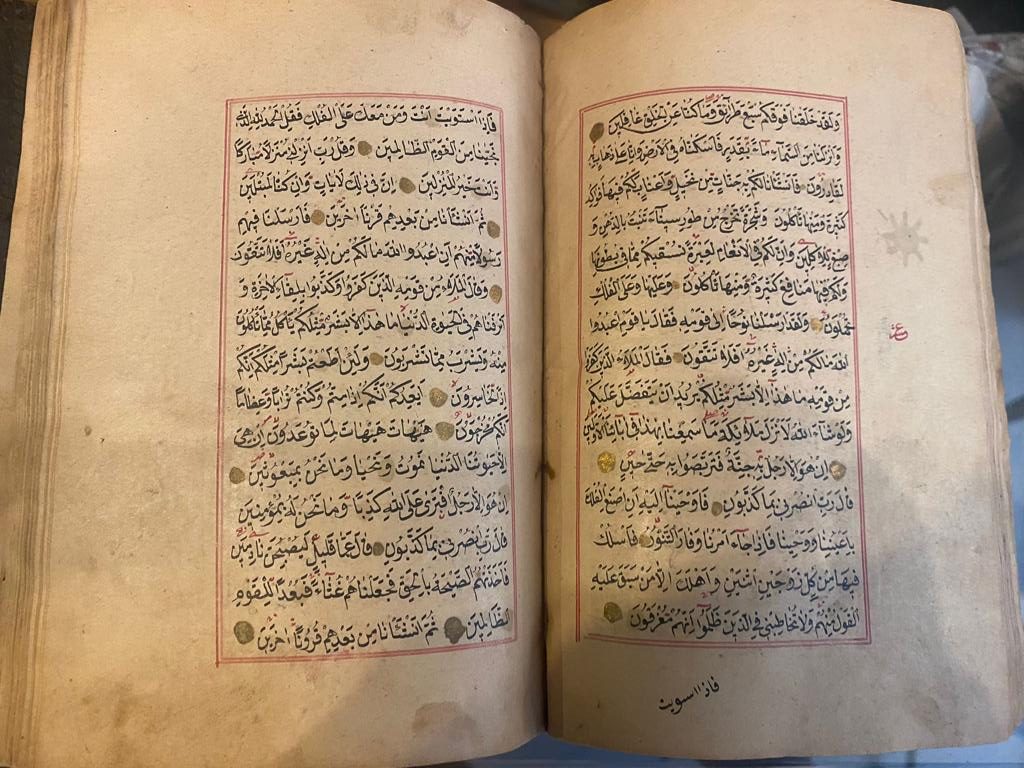 ولقد خلقنا فوقكم سبع طرائق وما كنا عن الخلق غافلين
وانزلنا من السماء ماء بقدر فاسكناه في الارض وانا على ذهاب به
لقادرون فانشأنا لكم به جنات من نخيل واعناب لكم فيها فواكه
كثيرة ومنها تاكلون وشجرة تخرج من طور سيناء تنبت بالدهن و
صبغ للاكلين وان لكم في الانعام لعبرة نسقيكم مما في بطونها
ولكم فيها منافع كثيرة ومنها تاكلون وعليها وعلى الفلك
تحملون ولقد ارسلنا نوحا الى قومه فقال يا قوم اعبدوا
الله ما لكم من اله غيره افلا تتقون فقال الملاء الذين كفروا
من قومه ما هذا الا بشر مثلكم يريد ان يتفضل عليكم
ولو شاء الله لانزل ملائكة ما سمعنا بهذا في ابائنا الاولين
ان هو الا رجل به جنة فتربصوا به حتى حين
قال رب انصرني بما كذبون فاوحينا اليه ان اصنع الفلك
باعيننا ووحينا فاذا جاء امرنا وفار التنور فاسلك
فيها من كل زوجين اثنين واهلك الا من سبق عليه
القول منهم ولا تخاطبني في الذين ظلموا انهم مغرقون
ع
فاذا استويت
فاذا استويت انت ومن معك على الفلك فقل الحمد لله الذي
نجينا من القوم الظالمين وقل رب انزلني منزلا مباركا
وانت خير المنزلين ان في ذلك لايات وان كنا لمبتلين
ثم انشأنا من بعدهم قرنا اخرين فارسلنا فيهم
رسولا منهم ان اعبدوا الله ما لكم من اله غيره افلا تتقون
وقال الملاء من قومه الذين كفروا وكذبوا بلقاء الاخرة و
اترفناهم في الحيوة الدنيا ما هذا الا بشر مثلكم ياكل مما تاكلون
منه ويشرب مما تشربون ولئن اطعتم بشرا مثلكم انكم
اذا لخاسرون ايعدكم انكم اذا متم وكنتم ترابا وعظاما
انكم مخرجون هيهات هيهات لما توعدون ان هي
الا حيوتنا الدنيا نموت ونحيا وما نحن بمبعوثين
ان هو الا رجل افترى على الله كذبا وما نحن له بمؤمنين
قال رب انصرني بما كذبون قال عما قليل ليصبحن نادمين
فاخذتهم الصيحة بالحق فجعلناهم غثاء فبعدا للقوم
الظالمين ثم انشأنا من بعدهم قرونا اخرين